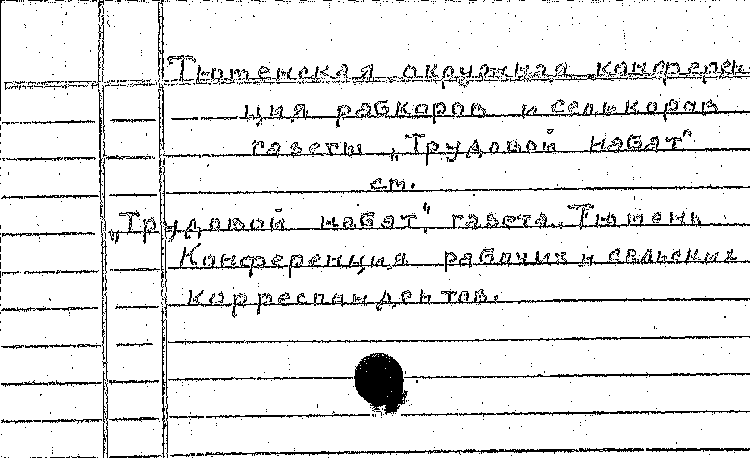 Тюменская окружная конферен-
ция рабкоров и селькоров
газеты „Трудовой набат"
см.
„Трудовой набат". газета. Тюмень
Конференция рабочих и сельских
корреспондентов.